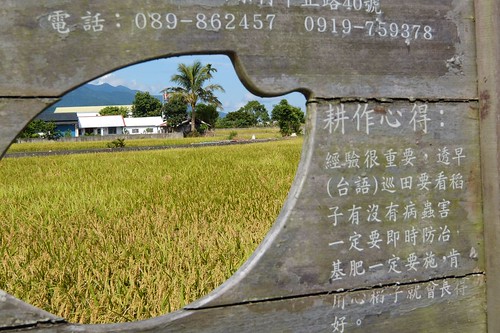 正路40號
電話：089-862457 0919-759378
耕作心得：
經驗很重要，透早
(台語)巡田要看稻
子有沒有病蟲害
一定要即時防治，
基肥一定要施，肯
用心稻子就會長得
好。